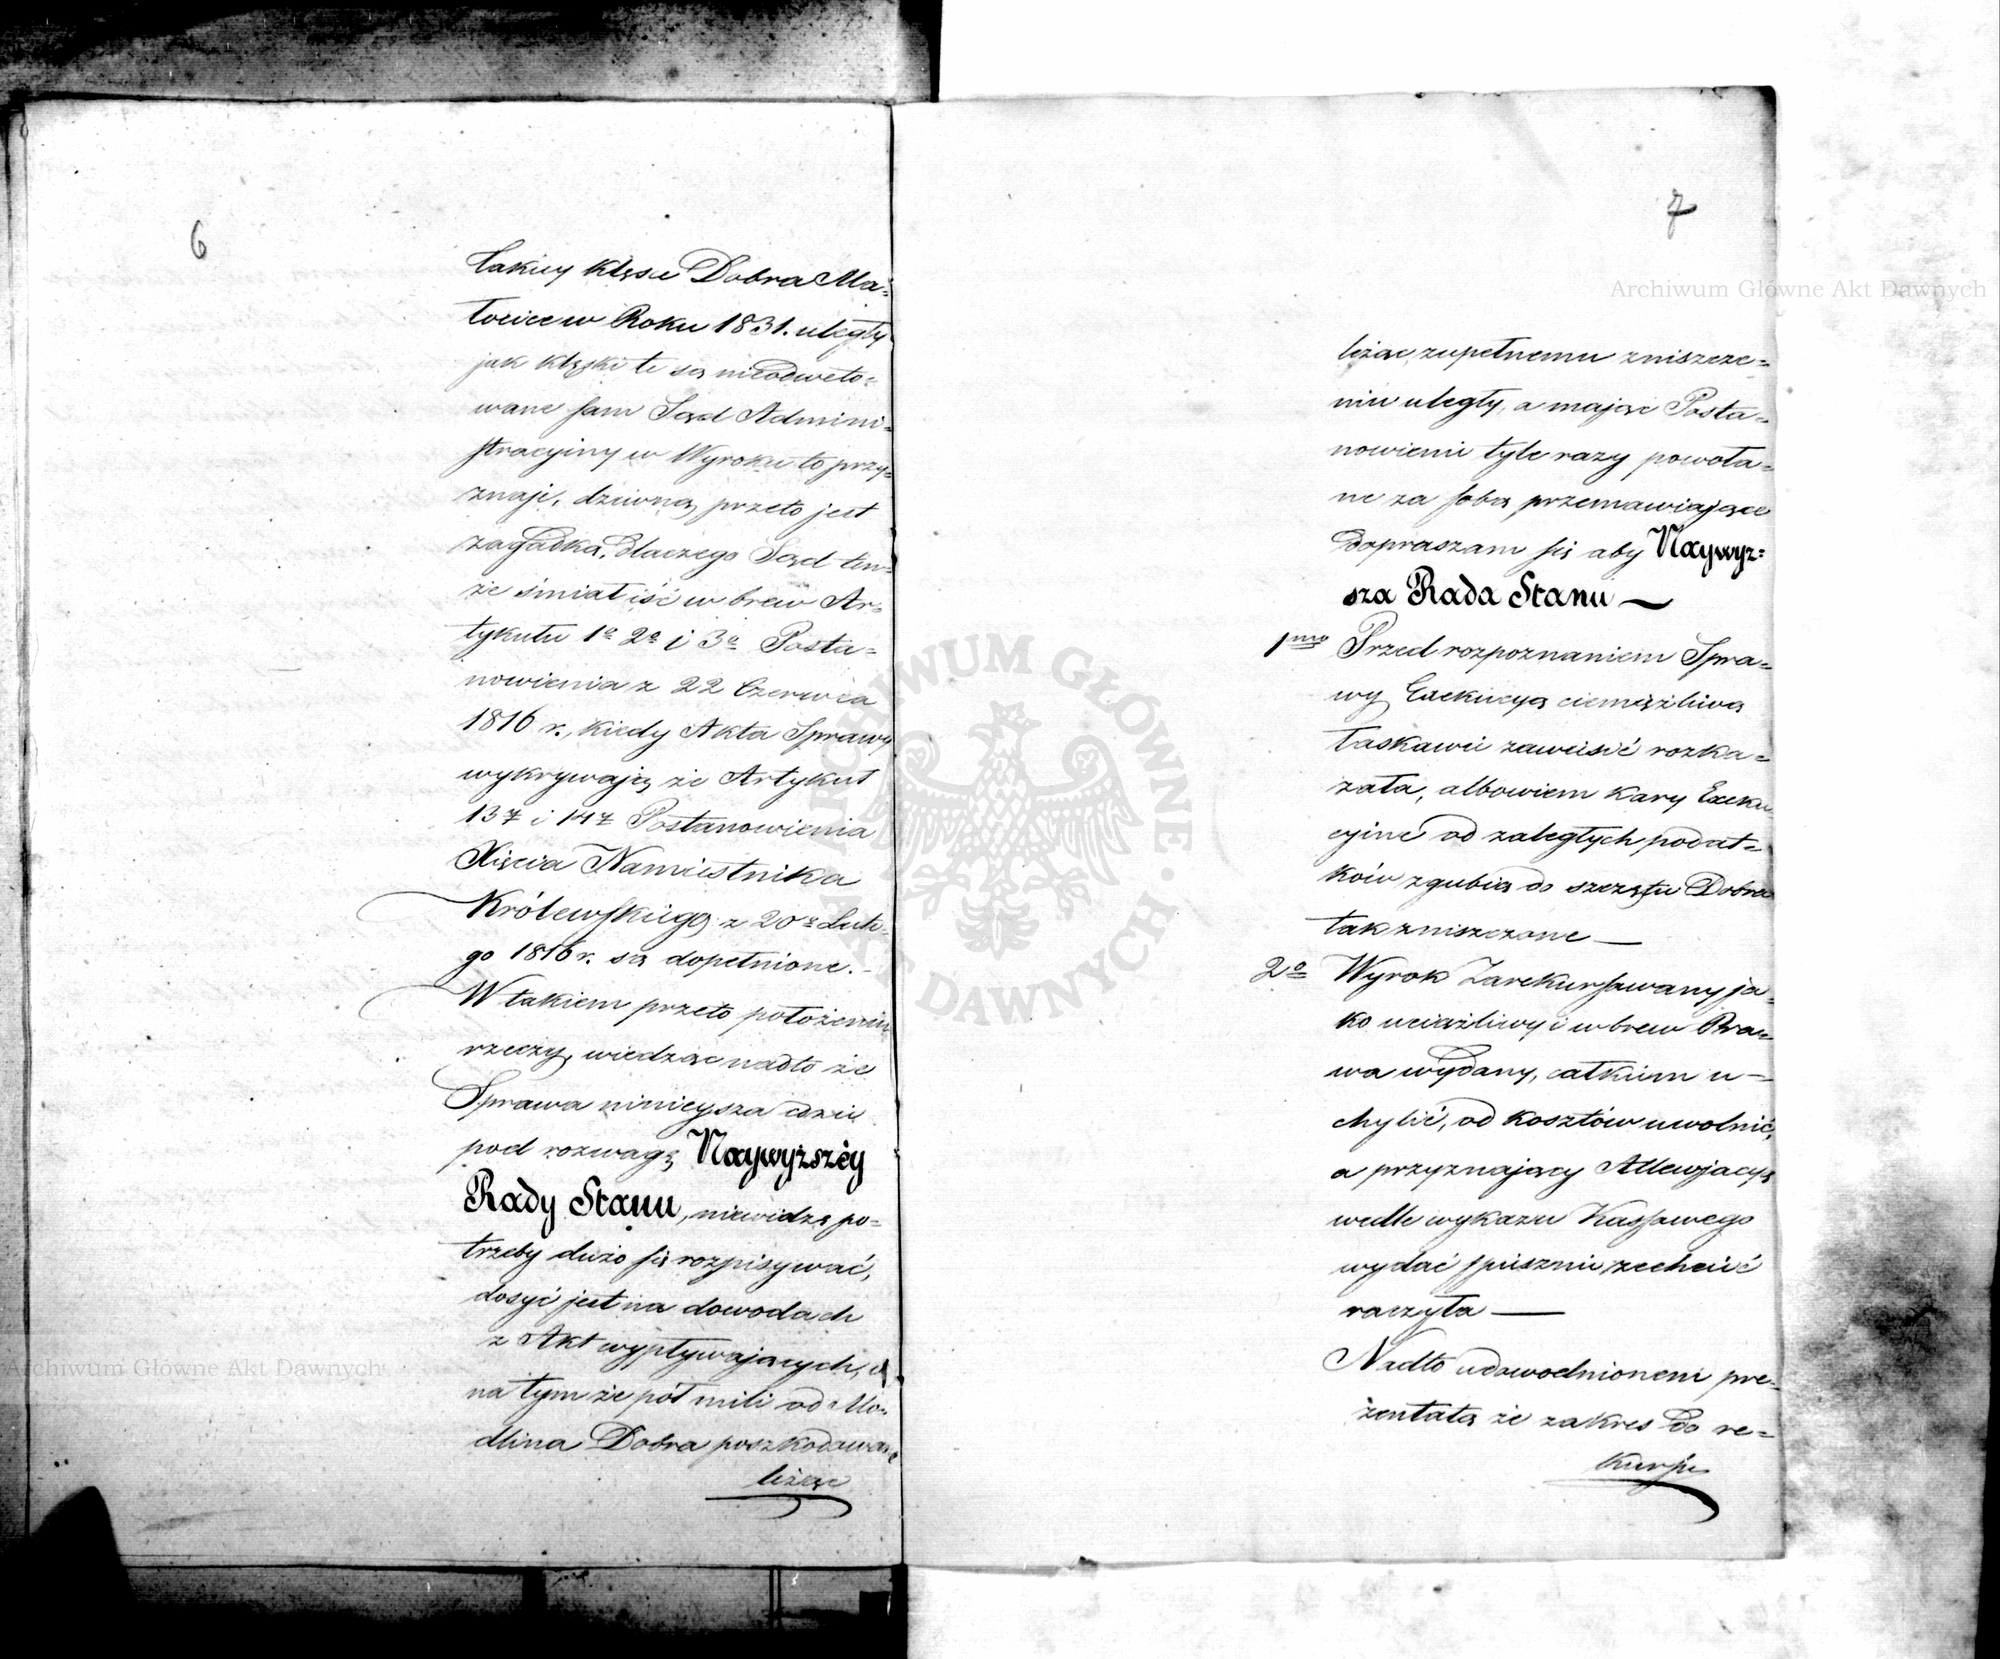 6
takiey klęsce Dobra Ma=
łocice w Roku 1831. uległy
jak klęski te są nieodweto=
wane sam Sąd Admini=
stracyiny w Wyroku to przy=
znaje, dziwną przeto jest
zagadką, dlaczego Sąd ten=
że śmiał iść w brew Ar=
tykułu 1º 2º i 3º Posta=
nowienia z 22 Czerwca
1816 r., kiedy Akta Sprawy
wykrywają że Artykuł
137 i 147 Postanowienia
Xięcia Namiestnika
Królewskiego z 20º Lute=
go 1816 r. są dopełnione.
W takiem przeto położeniu
rzeczy, wiedząc nadto że
Sprawa ninieysza idzie
pod rozwagę Naywyższéy
Rady Stanu, niewidzę po=
trzeby dużo się rozpisywać,
dosyć jest na dowodach
z Akt wypływających, i
na tym że pół mili od Mo=
dlina Dobra poszkodowane
leżąc
7
leżąc zupełnemu zniszcze=
niu uległy, a mając Posta=
nowienie tyle razy powoła=
ne za sobą przemawiające
dopraszam się aby Naywyż=
sza Rada Stanu —
1mo Przed rozpoznaniem Spra=
wy Exekucyą ciemiężliwą
łaskawie zawiesić rozka=
zała, albowiem kary Exeku
cyine od zaległych podat=
ków zgubią do szczętu Dobra
tak zniszczone —
2º Wyrok Zarekursowany ja=
ko uciążliwy i w brew Pra=
wa wydany, całkiem u=
chylić, od kosztów uwolnić,
a przyznający Allewjacyą
wedle wykazu Kassowego
wydać spiesznie zechcieć
raczyła —
Nadto udowodnioneni pre=
zentatą że zakres do re=
kursu
Archiwum Główne Akt Dawnych
Archiwum Główne Akt Dawnych
ARCHIWUM GŁÓWNE AKT DAWNYCH